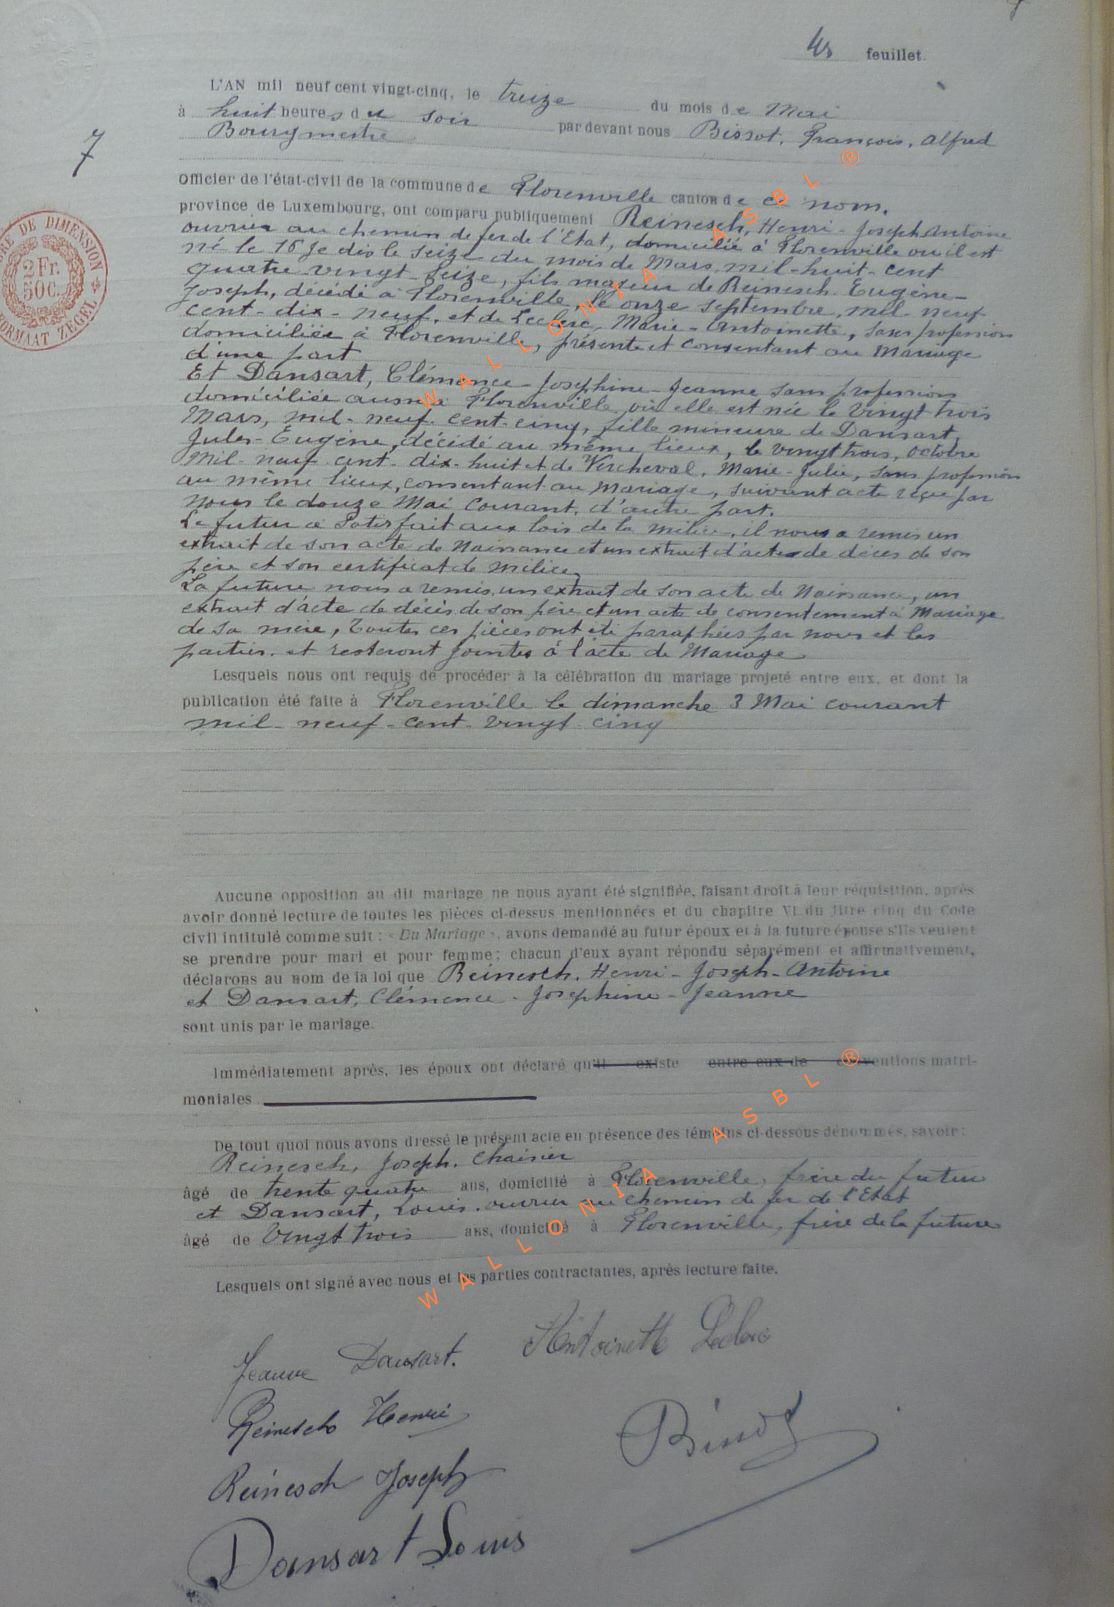 48 feuillet.
L'AN mil neuf cent vingt-cinq, le treize du mois de Mai
à huit heures du soir par devant nous Bissot, François, Alfred
Bourgmestre
7
Officier de l'état-civil de la commune de Florenville canton de ce nom,
province de Luxembourg, ont comparu publiquement Reinesch, Henri-Joseph Antoine
ouvrier au chemin de fer de l'Etat, domicilié à Florenville où il est
né le 16 Je dis le Seize du mois de Mars, mil-huit-cent
quatre vingt-seize, fils majeur de Reinesch Eugène-
Joseph, décédé à Florenville, le onze septembre, mil-neuf
cent-dix-neuf, et de Leclerc, Marie-Antoinette, sans profession
domiciliée à Florenville, présente et consentant au Mariage
d'une part
Et Dansart, Clémence-Joséphine-Jeanne sans profession
domiciliée aussi à Florenville, où elle est née le vingt trois
Mars, mil-neuf cent-cinq, fille mineure de Dansart,
Jules-Eugène, décédé au même lieux, le vingt trois, octobre
mil-neuf cent-dix-huit et de Vercheval, Marie-Julie, sans profession
au même lieux, consentant au Mariage, suivant acte reçu par
nous le douze Mai courant, d'autre part.
Le futur a satisfait aux lois de la milice, il nous a remis un
extrait de son acte de Naissance et un extrait d'acte de décès de son
père et son certificat de milice,
La future nous a remis, un extrait de son acte de Naissance, un
extrait d'acte de décès de son père et un acte de consentement à Mariage
de sa mère, Toutes ces pièces ont été paraphées par nous et les
parties, et resteront jointes à l'acte de Mariage
Lesquels nous ont requis de procéder à la célébration du mariage projeté entre eux, et dont la
publication été faite à Florenville le dimanche 3 Mai courant
mil-neuf-cent-vingt-cinq
Aucune opposition au dit mariage ne nous ayant été signifiée, faisant droit à leur réquisition, après
avoir donné lecture de toutes les pièces ci-dessus mentionnées et du chapitre VI du titre cinq du Code
civil intitulé comme suit : « Du Mariage », avons demandé au futur époux et à la future épouse s'ils veulent
se prendre pour mari et pour femme; chacun d'eux ayant répondu séparément et affirmativement,
déclarons au nom de la loi que Reinesch, Henri-Joseph-Antoine
et Dansart, Clémence-Joséphine-Jeanne
sont unis par le mariage.
Immédiatement après, les époux ont déclaré qu'il existe entre eux de conventions matri-
moniales
De tout quoi nous avons dressé le présent acte en présence des témoins ci-dessous dénommés, savoir :
Reinesch, Joseph, Chaisier
âgé de trente quatre ans, domicilié à Florenville, frère du futur
et Dansart, Louis, ouvrier au chemin de fer de l'Etat
âgé de Vingt trois ans, domicilié à Florenville, frère de la future
Lesquels ont signé avec nous et les parties contractantes, après lecture faite.
Jeanne Dansart. Antoinette Leclerc
Reinesch Henri
Bissot
Reinesch Joseph
Dansart Louis
2 Fr.
50 C.
DE DIMENSION
FORMAAT ZEGEL
WALLONIA ASBL ®
WALLONIA ASBL ®